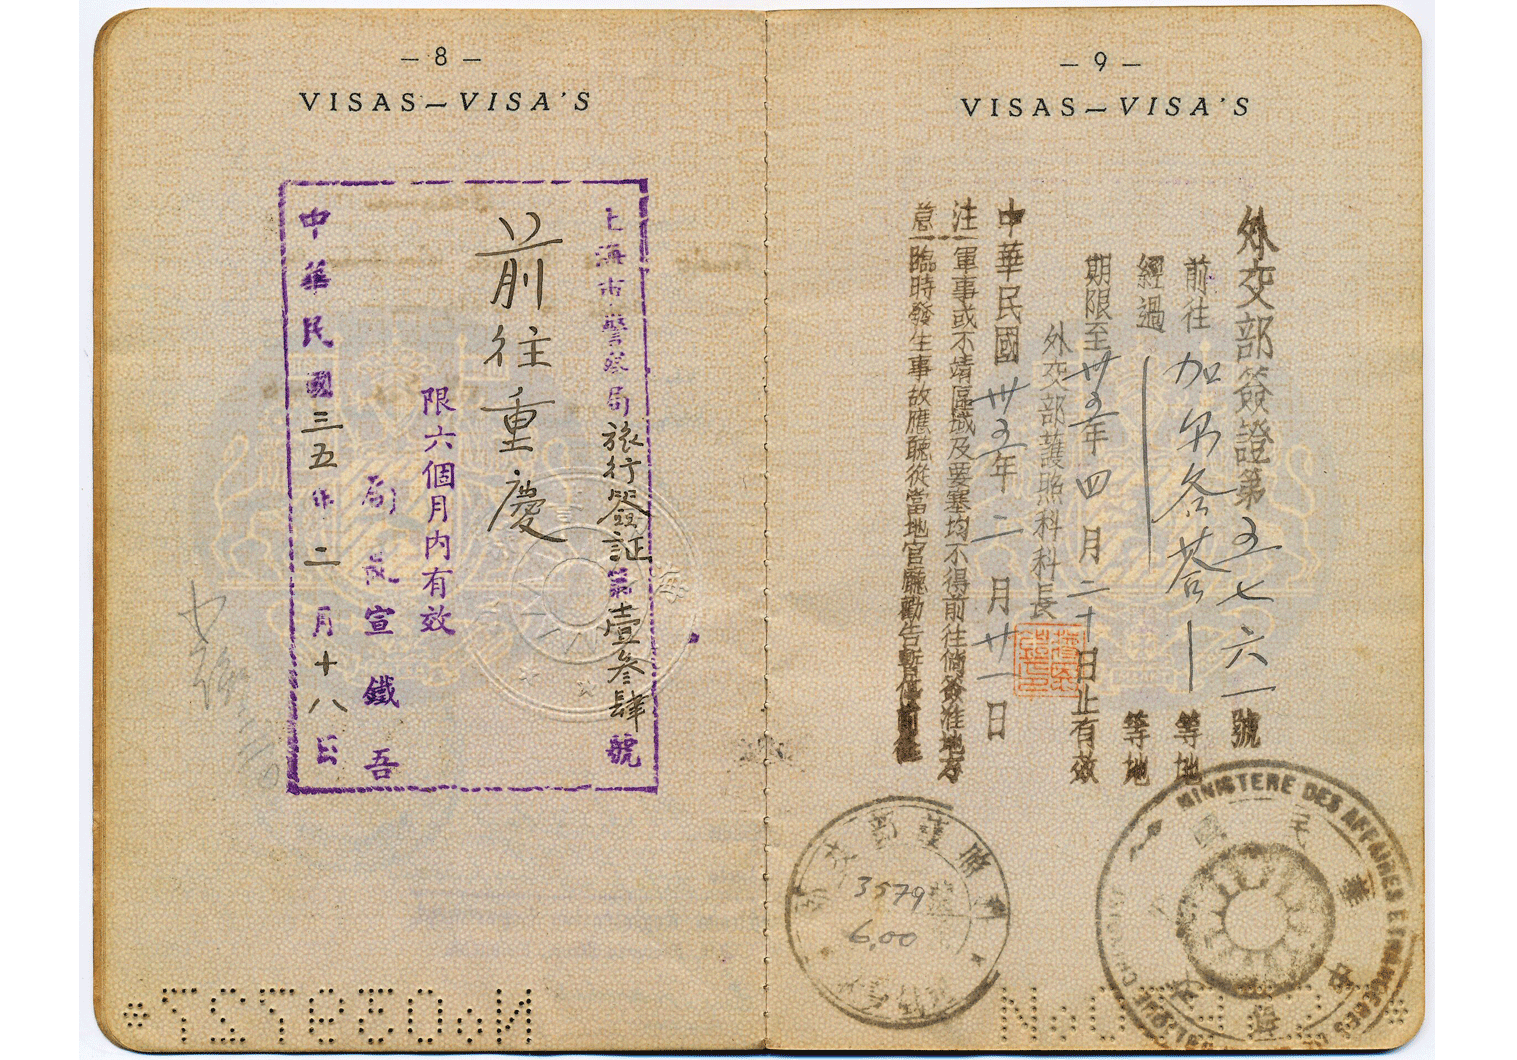 — 8 —
VISAS—VISA'S
上海市警察局旅行簽証第壹叁肆號
前往重慶
限六個月內有效
局長宣鐵吾
中華民國三五年二月十八日
— 9 —
VISAS—VISA'S
外交部簽證第五七六一號
前往加尔各荅 等地
經過 等地
期限至卅五年四月二十日止有效
外交部護照科科長
中華民國卅五年二月廿一日
注 軍事或不靖區域及要塞均不得前往倘簽准地方
意 臨時發生事故應聽從當地官廳勸告暫停前往
外交部護照
3579
6.00
MINISTERE DES AFFAIRES ETRANGERES
中華民國
No